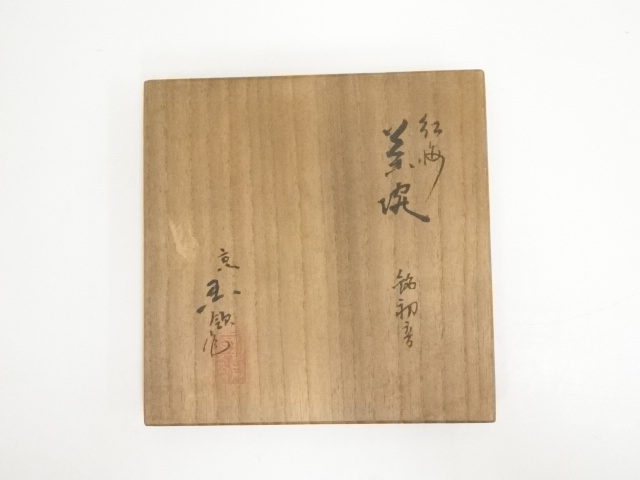 紅梅
茶碗
銘 初音
京 玉
作